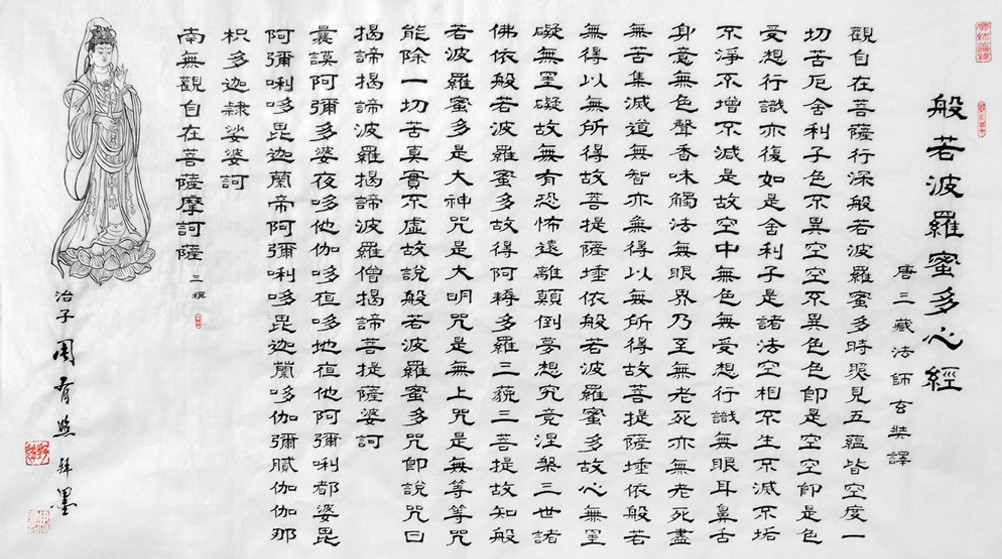 般若波羅蜜多心經
唐三藏法師玄奘譯
觀自在菩薩行深般若波羅蜜多時照見五蘊皆空度一
切苦厄舍利子色不異空空不異色色即是空空即是色
受想行識亦復如是舍利子是諸法空相不生不滅不垢
不淨不增不減是故空中無色無受想行識無眼耳鼻舌
身意無色聲香味觸法無眼界乃至無老死亦無老死盡
無苦集滅道無智亦無得以無所得故菩提薩埵依般若
無得以無所得故菩提薩埵依般若波羅蜜多故心無罣
礙無罣礙故無有恐怖遠離顛倒夢想究竟涅槃三世諸
佛依般若波羅蜜多故得阿耨多羅三藐三菩提故知般
若波羅蜜多是大神咒是大明咒是無上咒是無等等咒
能除一切苦真實不虛故說般若波羅蜜多咒即說咒曰
揭諦揭諦波羅揭諦波羅僧揭諦菩提薩婆訶
曩謨阿彌多婆夜哆他伽哆夜哆地夜他阿彌唎都婆毘
阿彌唎哆毘迦蘭帝阿彌唎哆毘迦蘭哆伽彌膩伽伽那
枳多迦隸娑婆訶
南無觀自在菩薩摩訶薩 三稱
冶子 周育照 拜墨